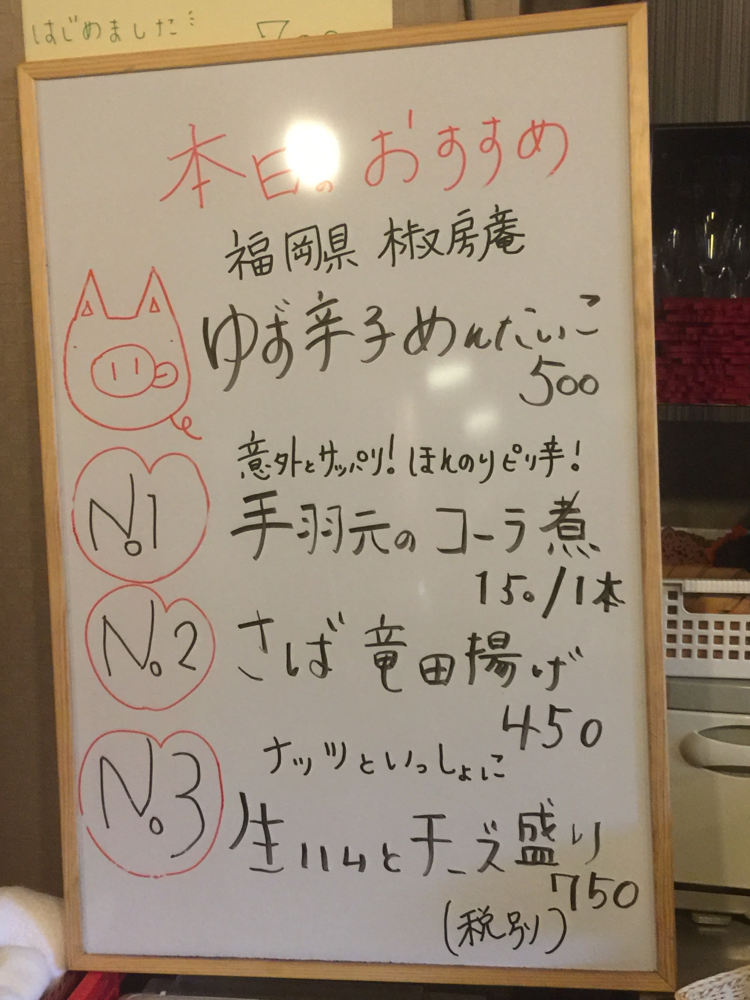 はじめました
本日のおすすめ
福岡県 椒房庵
ゆず辛子めんたいこ
500
意外とサッパリ!ほんのりピリ辛!
No.1
手羽元のコーラ煮
150/1本
No.2
さば竜田揚げ
450
ナッツといっしょに
No.3
生ハムとチーズ盛り
750
(税別)